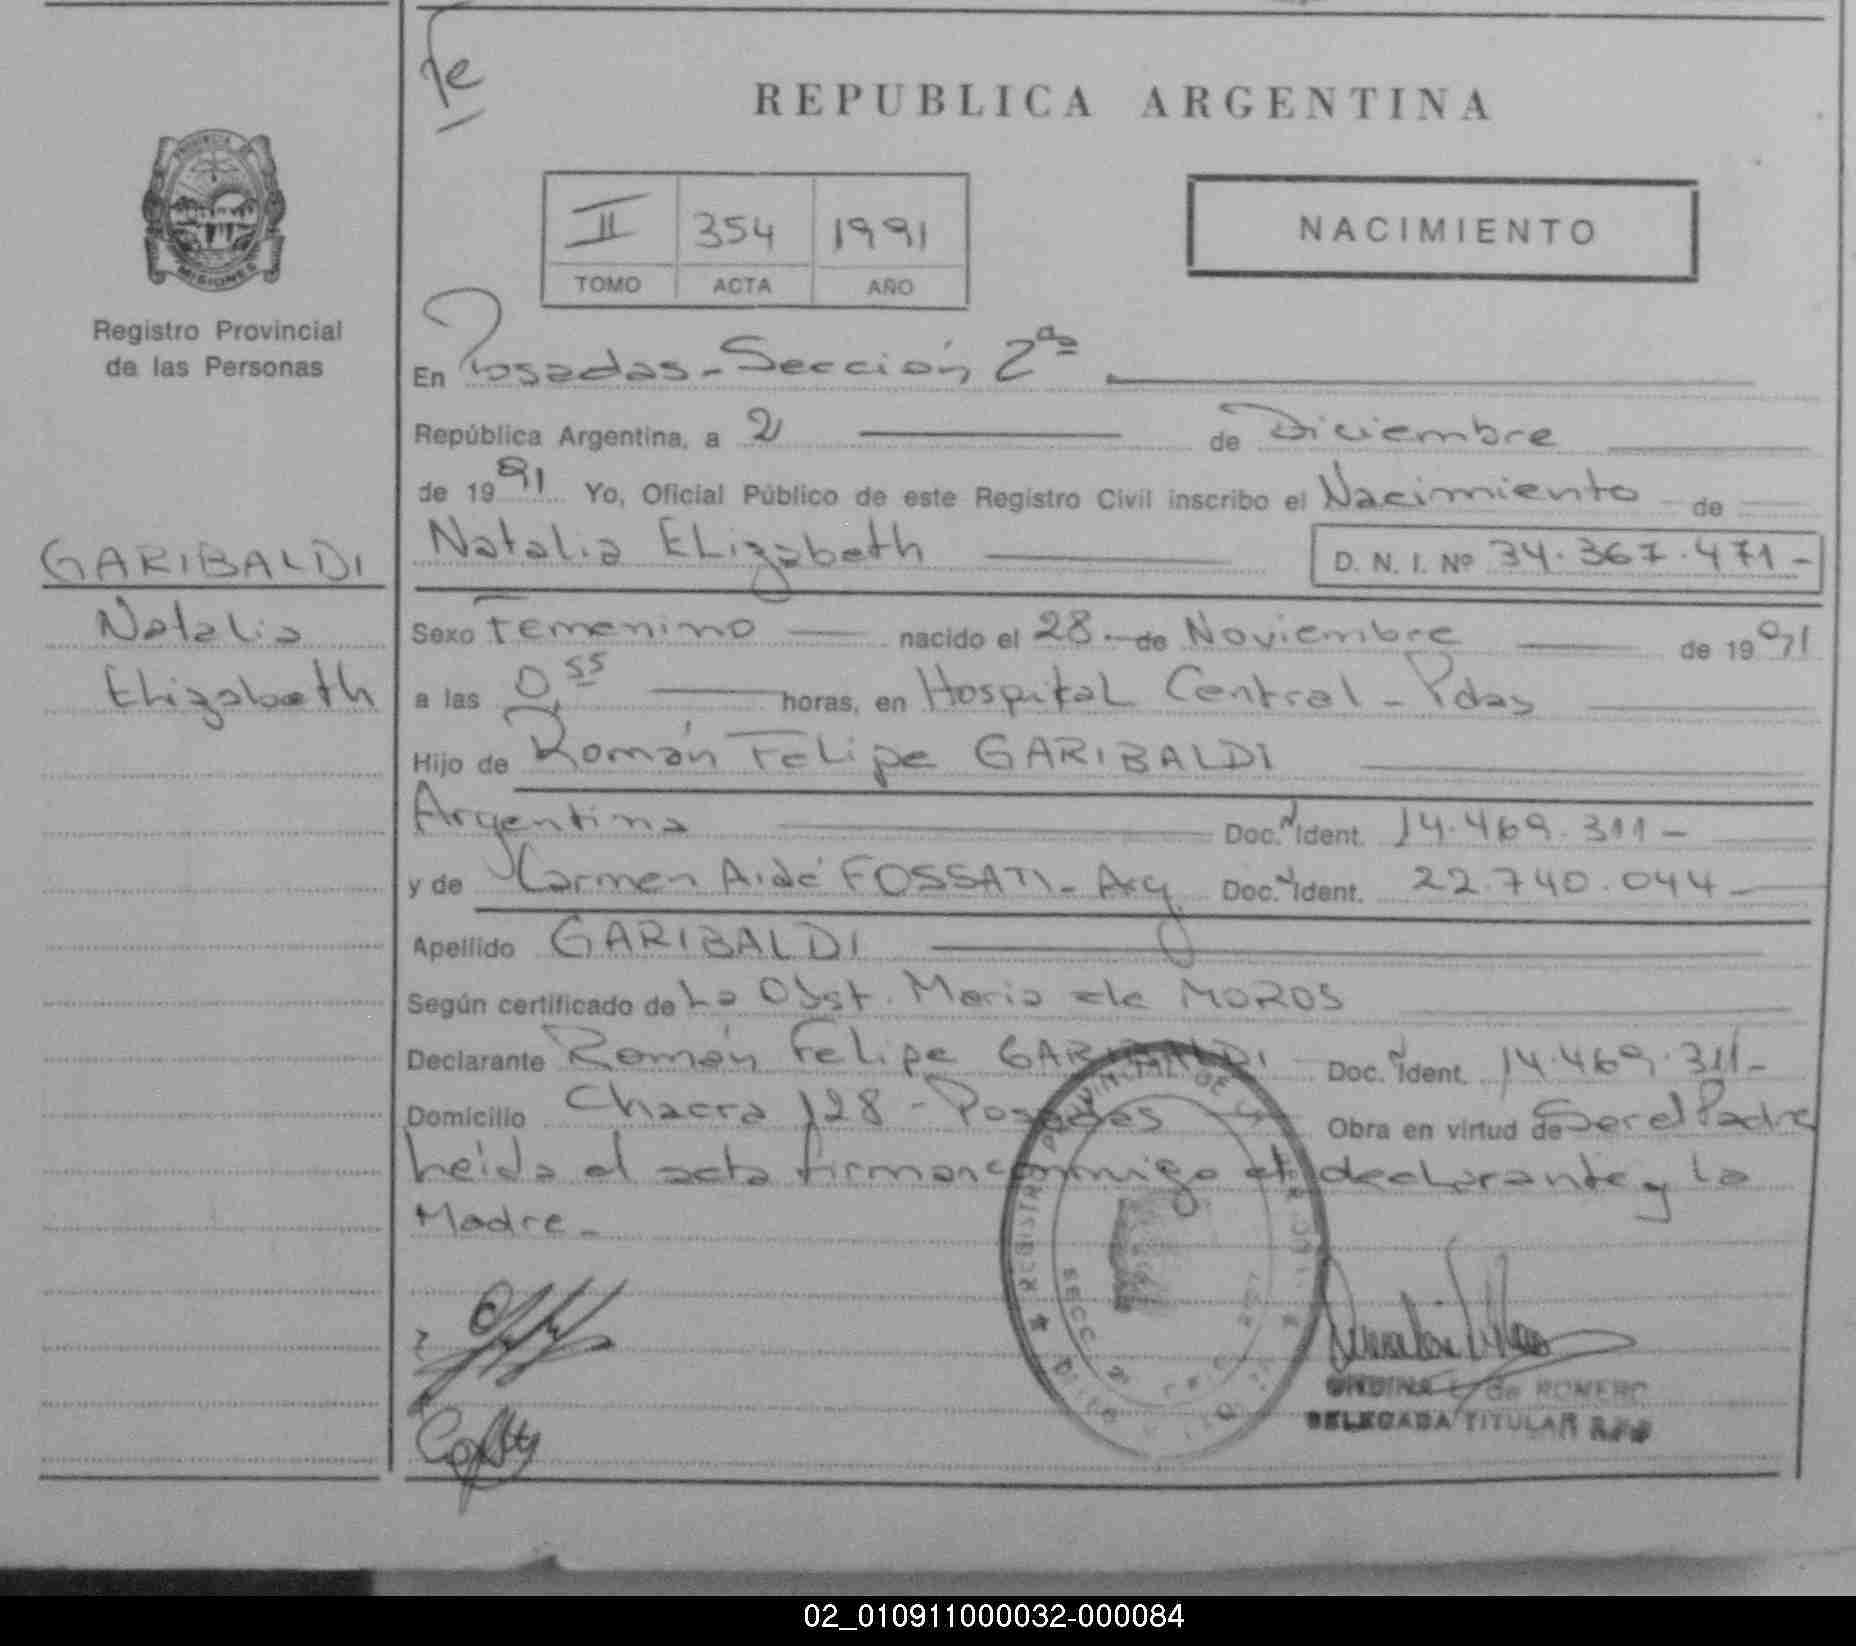 Te
REPUBLICA ARGENTINA
PROVINCIA DE
MISIONES
Registro Provincial
de las Personas
II 354 1991
TOMO ACTA AÑO
NACIMIENTO
En Posadas - Sección 2da
República Argentina, a 2 de Diciembre
de 1991 Yo, Oficial Público de este Registro Civil inscribo el Nacimiento de
GARIBALDI
Natalia Elizabeth D. N. I. Nº 34.367.471-
Natalia
Elizabeth
Sexo Femenino nacido el 28 de Noviembre de 1991
a las 0,55 horas, en Hospital Central - Pdas
Hijo de Román Felipe GARIBALDI
Argentina Doc. N Ident. 14.469.311-
y de Carmen Aidé FOSSATI - Arg. Doc. N Ident. 22.740.044-
Apellido GARIBALDI
Según certificado de La Obst. Maria de MOROS
Declarante Román Felipe GARIBALDI Doc. N Ident. 14.469.311-
Domicilio Chacra 128 - Posadas Obra en virtud de Ser el Padre
Leída el acta firman conmigo el declarante y la
Madre -
ONDINA L. de ROMERO
DELEGADA TITULAR
02_010911000032-000084